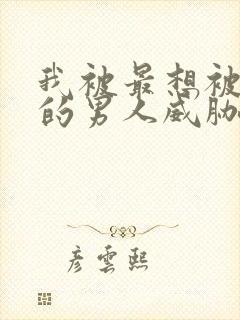 我被最想被
的男人威胁
彦雲熙